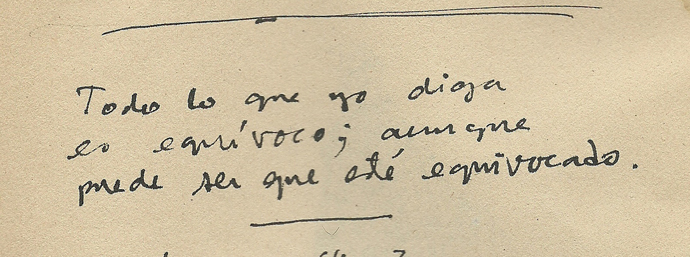 Todo lo que yo diga
es equívoco; aunque
puede ser que esté equivocado.